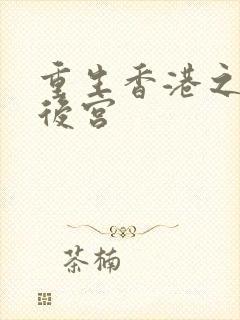 重生香港之
後宮
茶楠